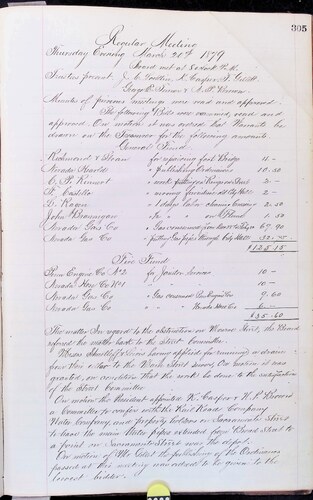 305
Regular Meeting
Thursday Evening March 20th 1879
Board met at 8 o'clock P.M.
Trustees present. J. C. K. Casper J. Gillet
Geo. C. & A. W. Brown
Minutes of previous meetings were read and approved
The following Bills were examined, read and
approved. On motion it was ordered that Warrants be
drawn on the Treasurer for the following amounts
General Fund
Richmond & Sloan for repairing foot Bridge 11 -
Nevada Herald " Publishing Ordinances 10.50
C. F. " work 2 -
P. Costello " moving furniture City Hall 2 -
E. Ragan " 1 days labor cleaning 2.50
John Brannigan " " " " 1.50
Nevada Gas Co " Gas consumed 67.90
Nevada Gas Co " putting Gas pipes through City Hall
$128.15
Fire Fund
Penn Engine Co No 2 for Janitor Service 10 -
Nevada Hose Co No 1 " " " 10 -
Nevada Gas Co " Gas consumed Penn Engine Co 9.60
Nevada Gas Co " " " Nevada Hose Co 6 -
$35.60
The matter in regard to the obstruction on Street, the Board
referred the matter back to the Street Committee
Messrs having applied for running a drain
from their cellar to the Main Street sewer On motion it was
granted, on condition that the work be done to the satisfaction
of the Street Committee
On motion the President appointed K. Casper & A. W. Brown
a Committee to confer with the Rail Road Company
Water Company, and property holders on Sacramento Street
to have the main Water pipes extended from Broad Street to
a point on Sacramento Street near the depot.
On motion of Mr Gillet the publishing of the Ordinances
passed at this meeting was ordered to be given to the
lowest bidder.